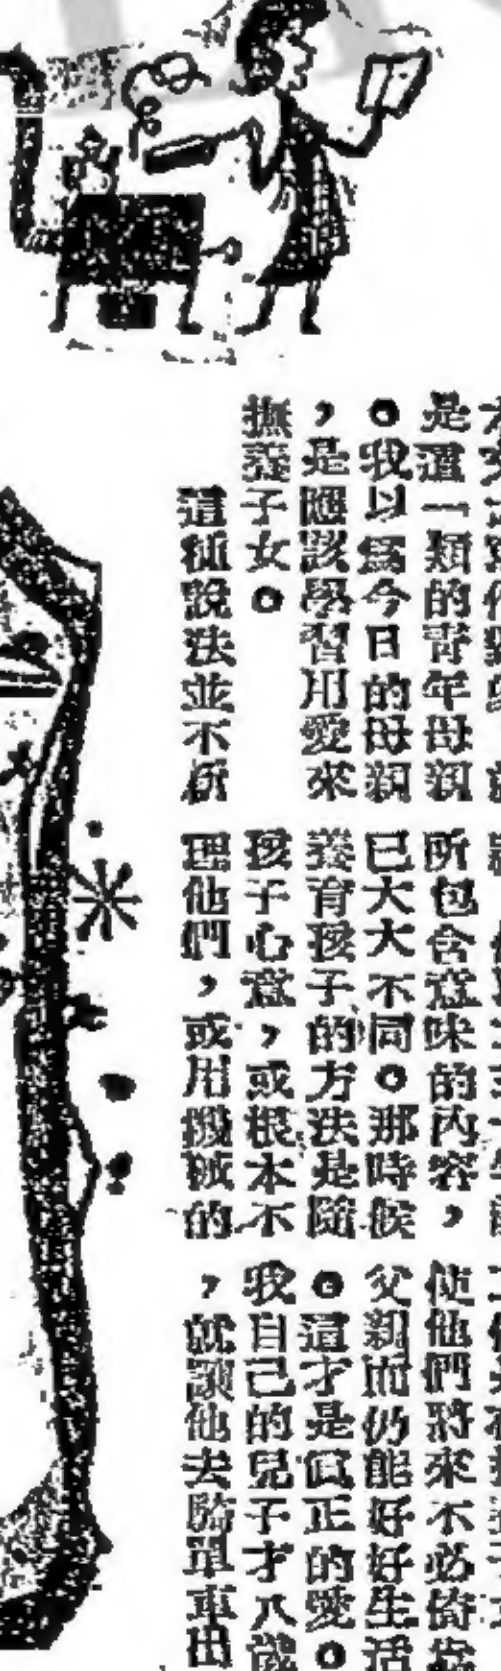 是這一類的青年母親
。我以爲今日的母親
，是應該學習用愛來
撫養子女。
這種說法並不新
所包含意味的內容，
已大大不同。那時候
養育孩子的方法是隨
孩子心意，或根本不
理他們，或用機械的
使他們將來不必倚靠
父親而仍能好好生活
。這才是真正的愛。
我自己的兒子才八歲
，就讓他去騎單車出